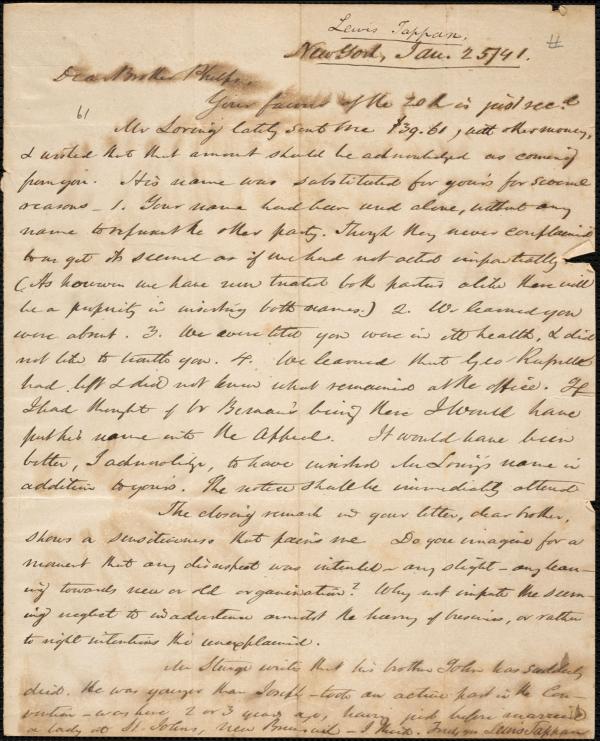 Lewis Tappan.
New York, Jan. 25/41.
Dear Brother Phelps,
61
Your favor of the 20th is just rec.d
Mr Loring lately sent me $39.61, with other money,
& wished that that amount should be acknowledged as coming
from you. His name was substituted for yours for several
reasons - 1. Your name had been used alone, without any
name to represent the other party. Though they never complained
to me yet it seemed as if we had not acted impartially
(As however we have now treated both parties alike there will
be a propriety in inserting both names.) 2. We learned you
were absent. 3. We were told you were in ill health, & did
not like to trouble you. 4. We learned that Geo Russell
had left & did not know what remained at the office. If
I had thought of br Benson's being there I would have
put his name into the Appeal. It would have been
better, I acknowledge, to have inserted Mr Loring's name in
addition to yours. The notice shall be immediately altered
The closing remark in your letter, dear brother,
shows a sensitiveness that pains me. Do you imagine for a
moment that any disrespect was intended - any slight - any lean-
ing towards new or old organization? Why not impute the seem-
ing neglect to inadvertence amidst the hurry of business, or rather
to right intentions tho unexplained.
Mr Sturge writes that his brother John has suddenly
died. He was younger than Joseph - took an active part in the Con-
vention - was here 2 or 3 years ago, having just before married
a lady at St. Johns, New Brunswick - I think. Lewis Tappan